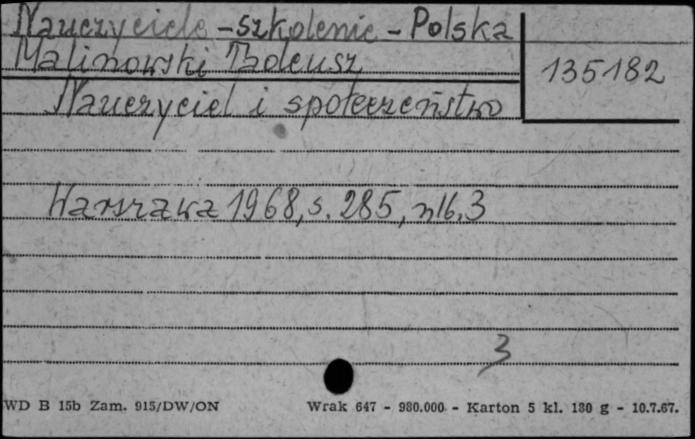 Nauczyciele - szkolenie - Polska
Malinowski Tadeusz
135182
Nauczyciel i społeczeństwo
Warszawa 1968, s. 285, nlb. 3
3
WD B 15b Zam. 915/DW/ON
Wrak 647 - 980.000 - Karton 5 kl. 180 g - 10.7.67.